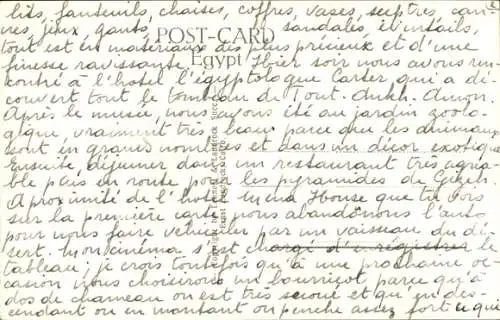 lits, fauteuils, chaises, coffres, vases, sceptres, can-
nes, jeux, gants, sandales, éventails,
POST-CARD
tout est en matériaux des plus précieux et d'une
Egypt
finesse ravissante. Hier soir nous avons ren-
contré à l'hôtel l'égyptologue Carter, qui a dé-
couvert tout le tombeau de Tout-Ankh-Amon.
Après le musée, nous avons été au jardin zoolo-
gique, vraiment très beau parce que les animaux
sont en grand nombre et dans un décor exotique
Ensuite, déjeuner dans un restaurant très agréa-
ble puis en route pour les pyramides de Gizeh.
A proximité de l'hôtel Mena House que tu vois
sur la première carte nous abandonons l'auto
pour nous faire véhiculer par un vaisseau du dé-
sert. Mon cinéma s'est chargé d'enregistrer le
tableau; je crois toutefois qu'à une prochaine oc-
casion nous choisirons un bourricot parce qu'à
dos de chameau on est très secoué et qu'en des-
cendant ou en montant on penche assez fort ce qui